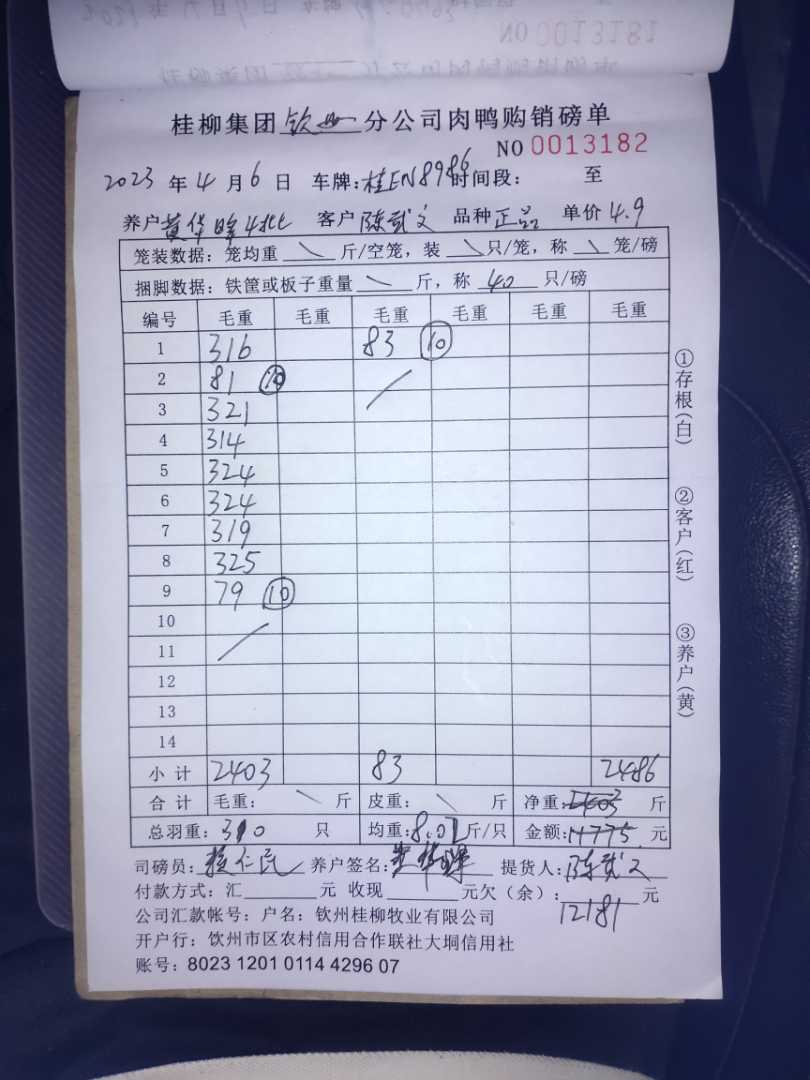 NO 0013181
桂柳集团 钦州 分公司肉鸭购销磅单
NO 0013182
2023 年 4 月 6 日 车牌:桂EN8986 时间段: 至
养户 黄华峰4批 客户 陈武文 品种 正品 单价 4.9
笼装数据: 笼均重 \ 斤/空笼, 装 \ 只/笼, 称 \ 笼/磅
捆脚数据: 铁筐或板子重量 \ 斤, 称 40 只/磅
编号 毛重 毛重 毛重 毛重 毛重 毛重
1 316 83 ⑩
2 81 ⑩
3 321
4 314
5 324
6 324
7 319
8 325
9 79 ⑩
10
11
12
13
14
小计 2403 83 2486
合计 毛重: \ 斤 皮重: \ 斤 净重: 2403 斤
总羽重: 310 只 均重: 8.02 斤/只 金额: 11775 元
司磅员: 仁民 养户签名: 黄华峰 提货人: 陈武文
付款方式: 汇 元 收现 元欠(余): 12181 元
公司汇款帐号: 户名: 钦州桂柳牧业有限公司
开户行: 钦州市区农村信用合作联社大垌信用社
账号: 8023 1201 0114 4296 07
①存根(白)
②客户(红)
③养户(黄)